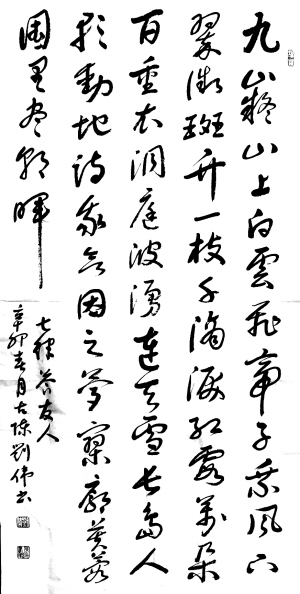 九嶷山上白雲飛帝子乘風下
翠微斑竹一枝千滴淚紅霞萬朵
百重衣洞庭波湧連天雪長島人
歌動地詩我欲因之夢寥廓芙蓉
國里盡朝暉
七律答友人
辛卯春月古陳劉偉書